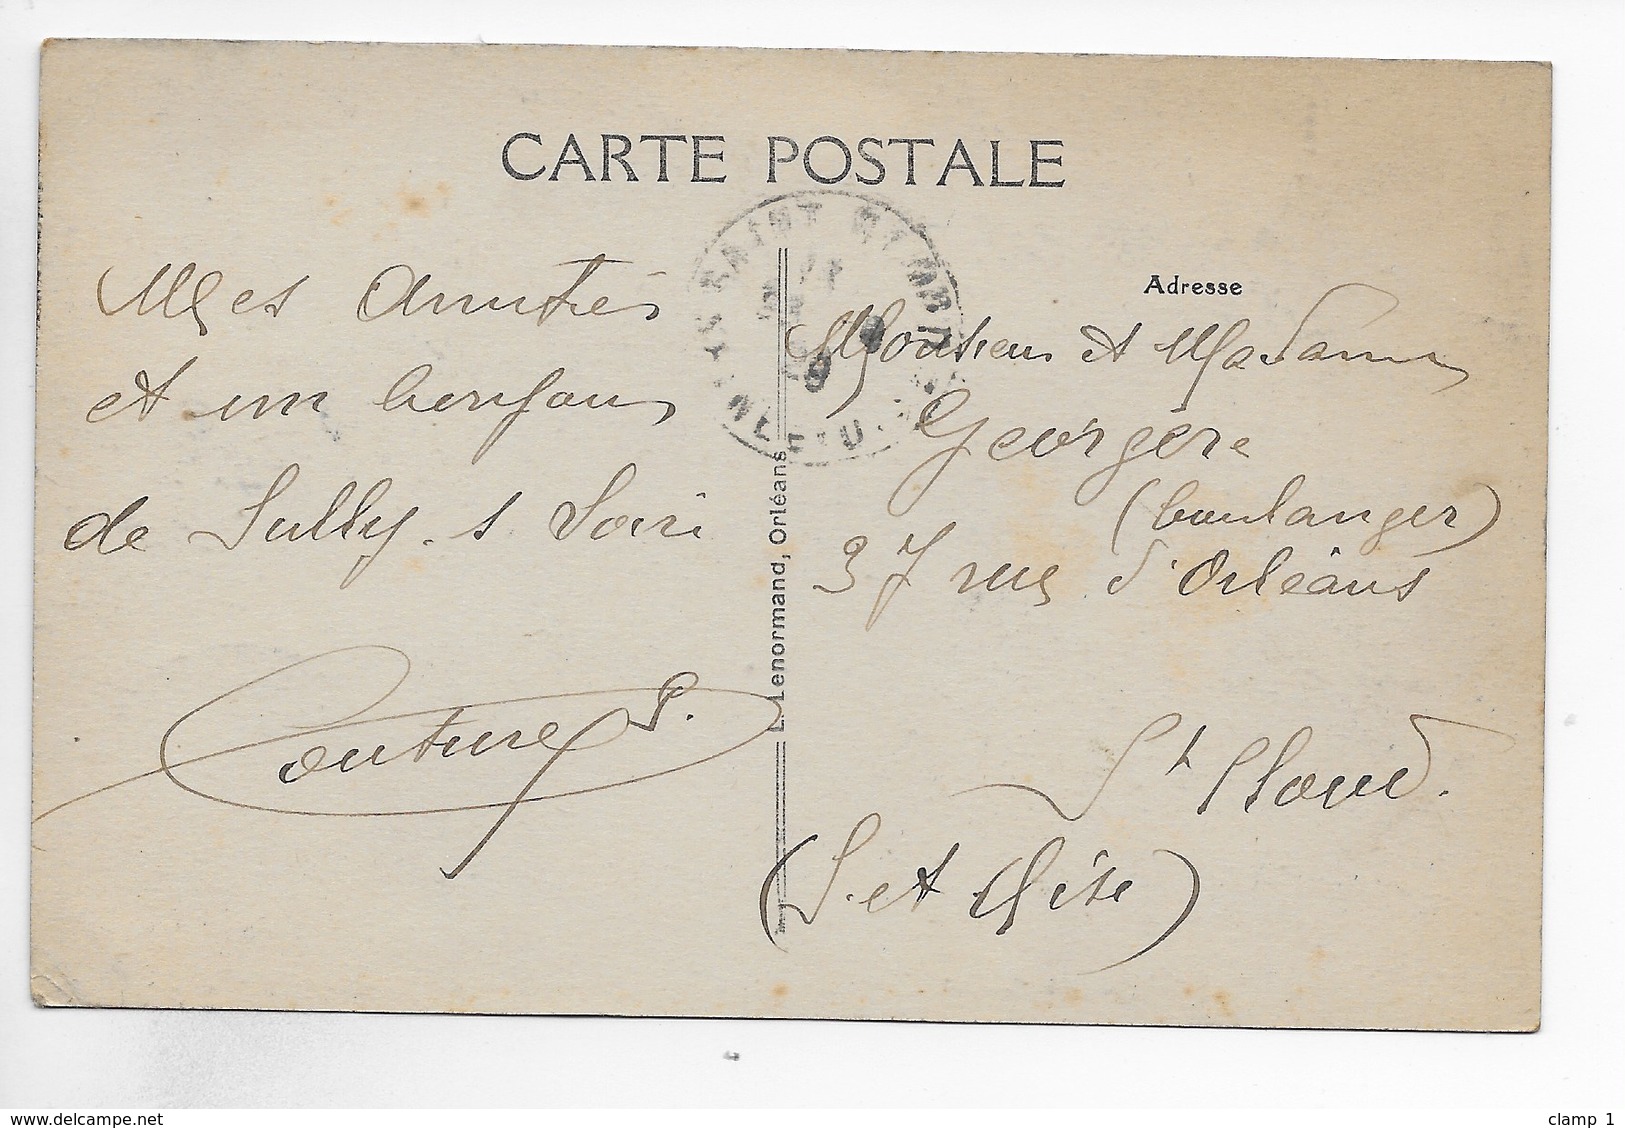 CARTE POSTALE
Mes Amitiés
et un bonjour
de Sully. s Loire
Couture G.
L. Lenormand, Orléans
Adresse
Monsieur et Madame
Georgère
(boulanger)
37 rue d'Orléans
St Cloud.
(S. et Oise)
delcampe.net
clamp 1